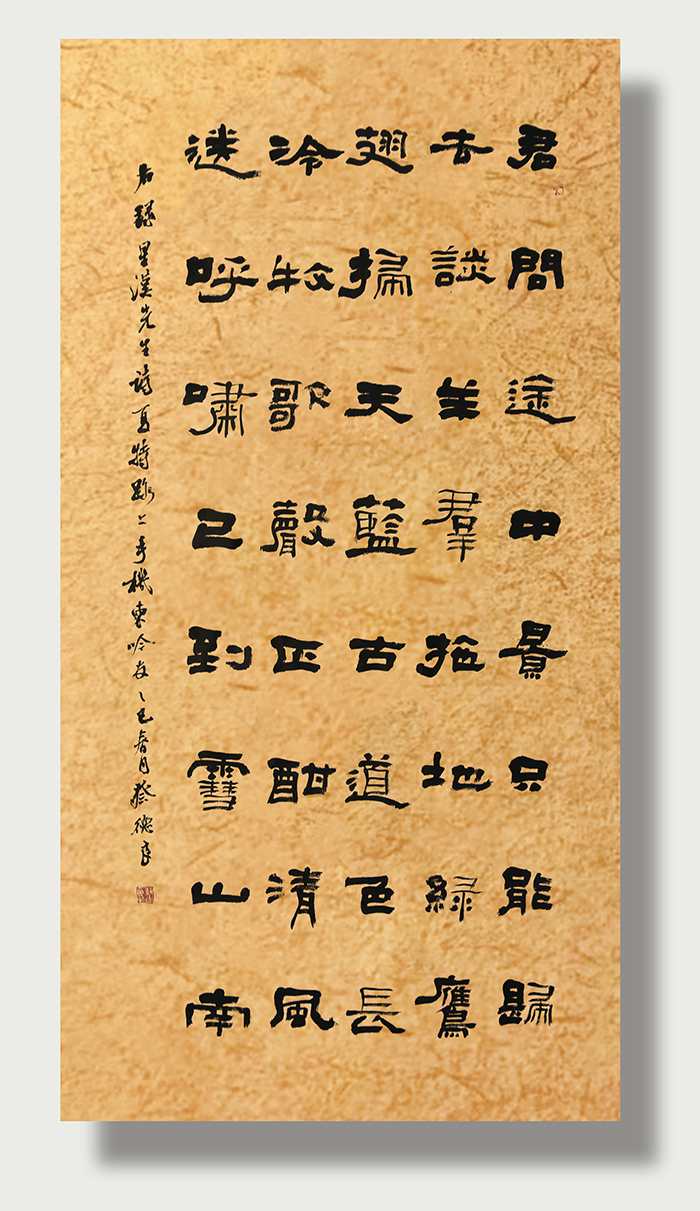 君問途中景只能歸
去談羊羣拖地綠鷹
翅掃天藍古道色長
冷牧歌聲正酣清風
送呼嘯已到雪山南
右録星漢先生詩夏特路上手機柬吟友乙巳春月蔡德良